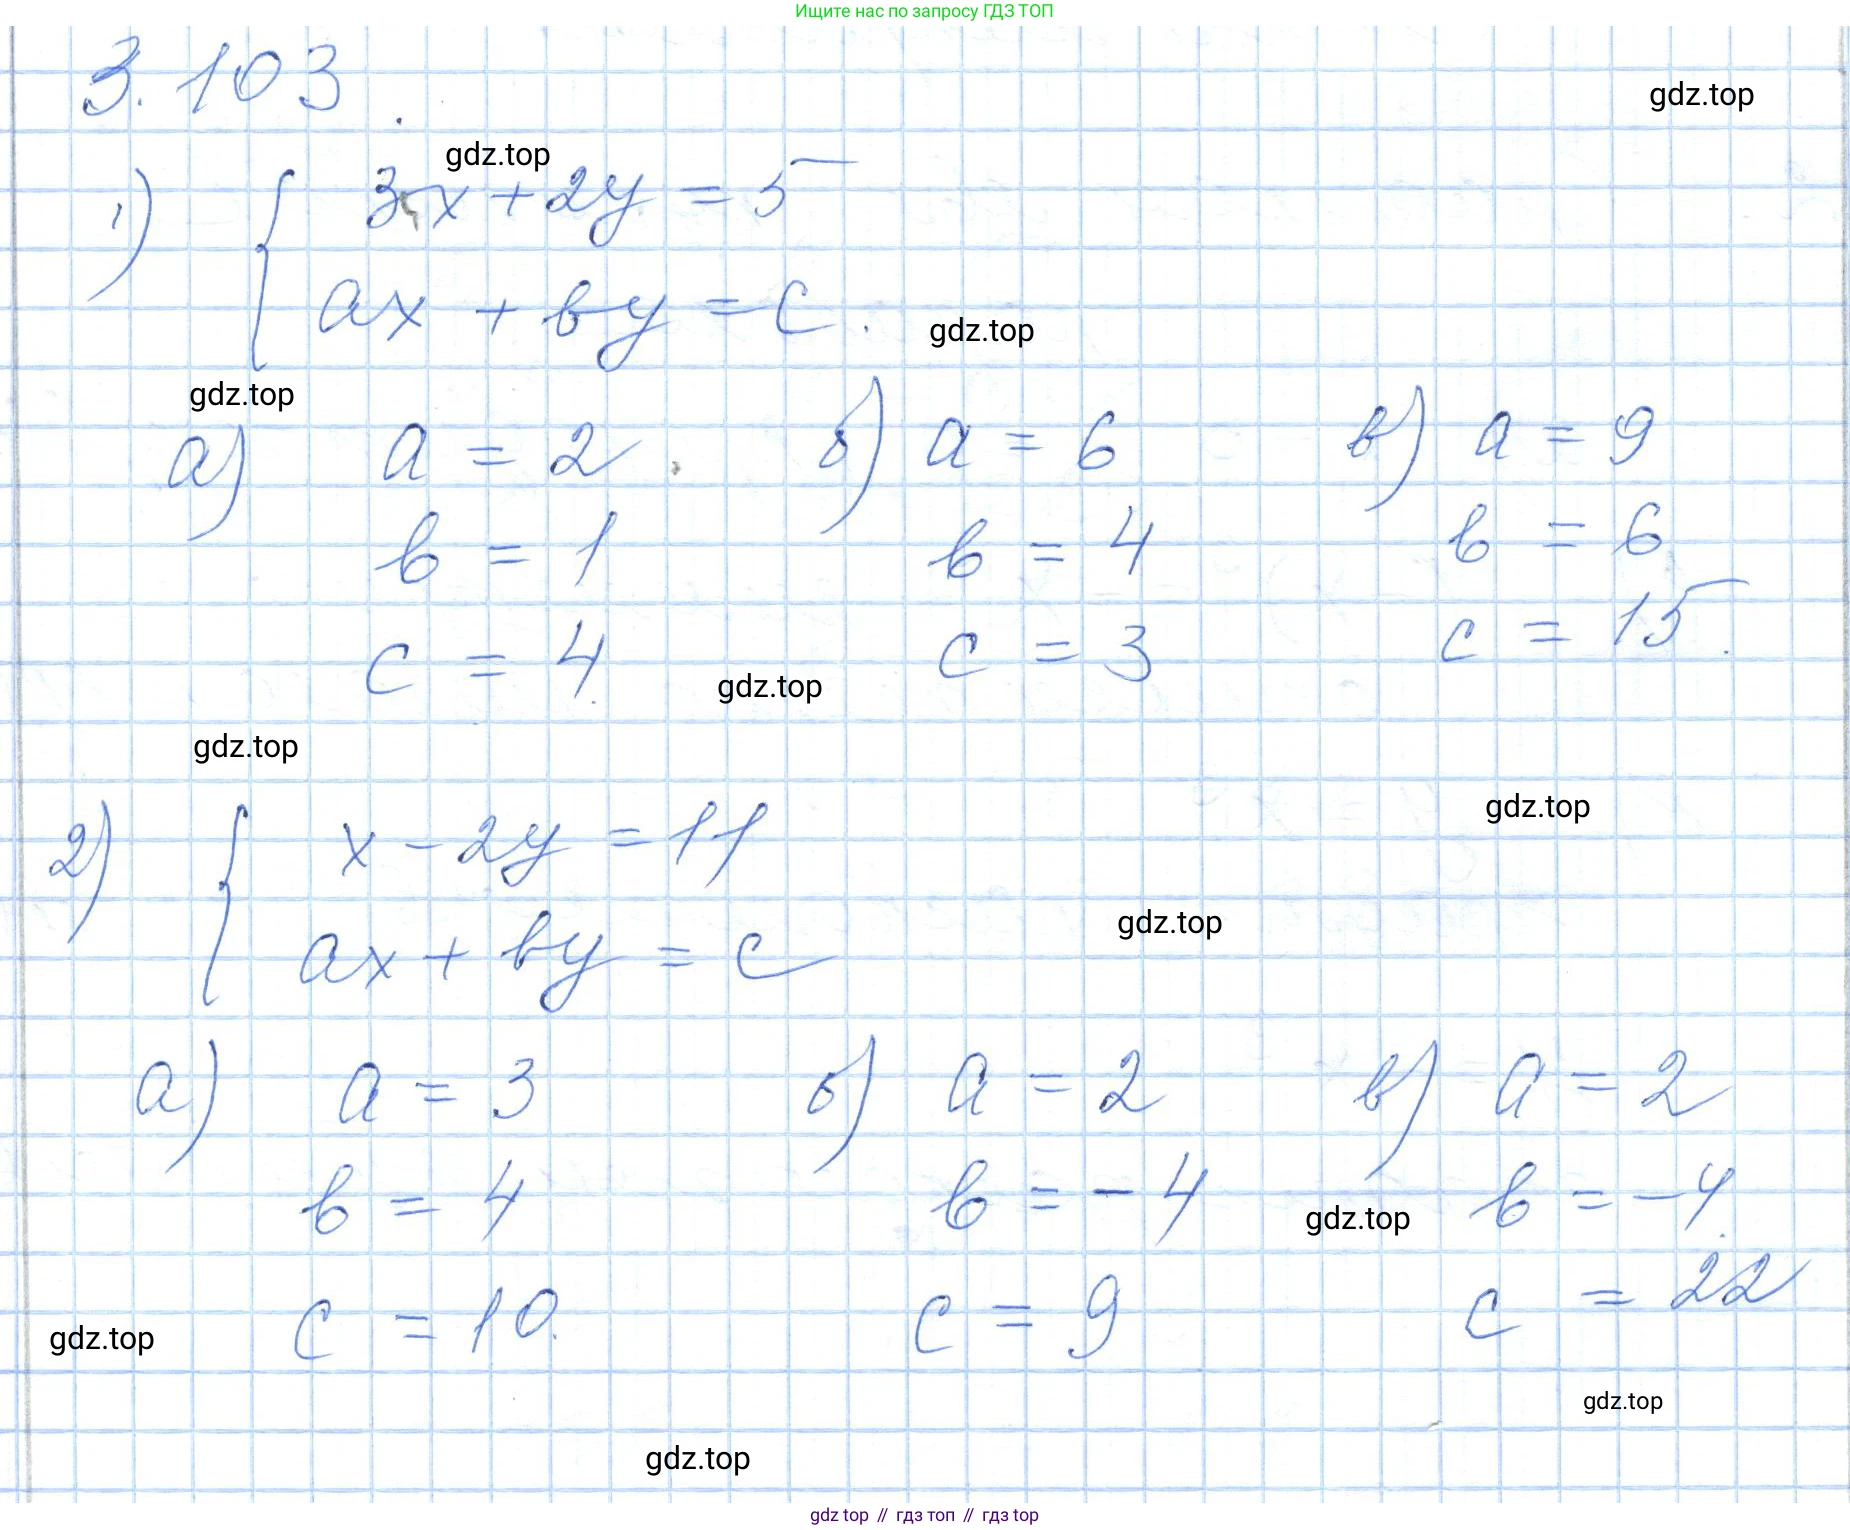 Ищите нас по запросу ГДЗ ТОП
3.103
gdz.top
gdz.top
1) { 3x + 2y = 5
ax + by = c.
gdz.top
gdz.top
а) a = 2 б) a = 6 в) a = 9
b = 1 b = 4 b = 6
c = 4 c = 3 c = 15
gdz.top
gdz.top
gdz.top
2) { x - 2y = 11
ax + by = c
gdz.top
а) a = 3 б) a = 2 в) a = 2
b = 4 b = -4 b = -4
gdz.top
c = 10 c = 9 c = 22
gdz.top
gdz.top
gdz.top
gdz top // гдз топ // gdz top